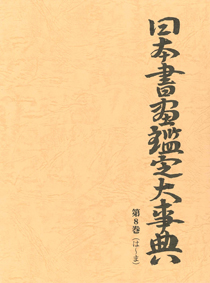 日本書画鑑定大事典
第8巻(は〜ま)